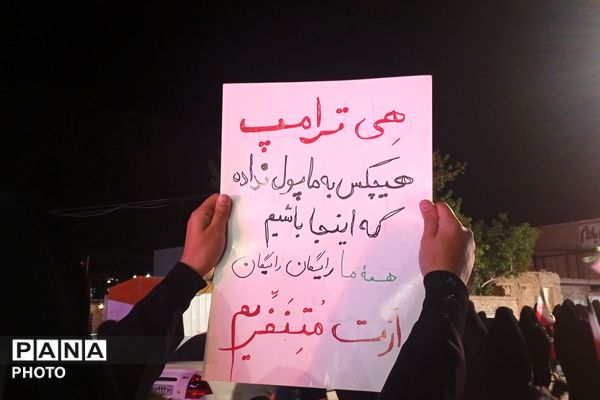 هِی ترامپ
هیچکس به ما پول نداده
که اینجا باشیم
همهٔ ما رایگان رایگان
ازت مُتِنَفِّریم
PANA
PHOTO